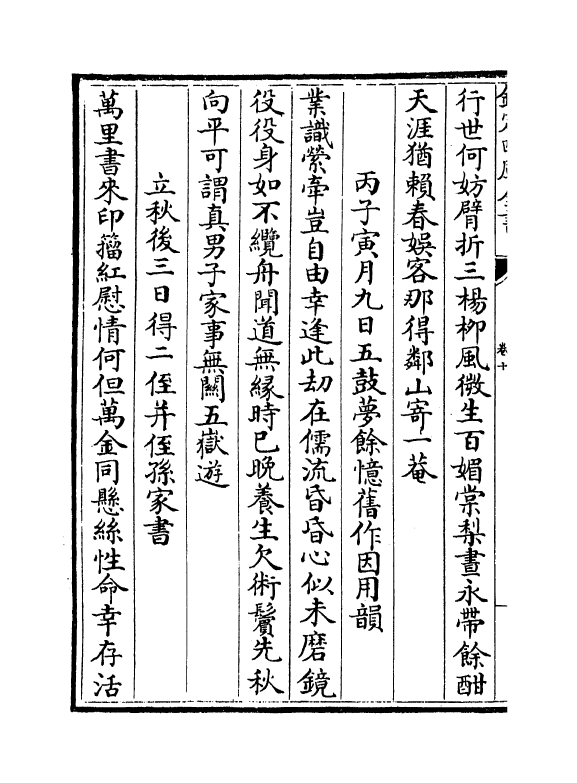 行世何妨臂折三楊柳風微生百媚棠梨晝永帶餘酣
天涯猶賴春娛客那得鄰山寄一菴
丙子寅月九日五鼓夢餘憶舊作因用韻
業識縈牽豈自由幸逢此劫在儒流昏昏心似未磨鏡
役役身如不纜舟聞道無緣時已晚養生欠術鬢先秋
向平可謂真男子家事無關五嶽遊
立秋後三日得二侄并侄孫家書
萬里書來印籀紅慰情何但萬金同懸絲性命幸存活
卷十